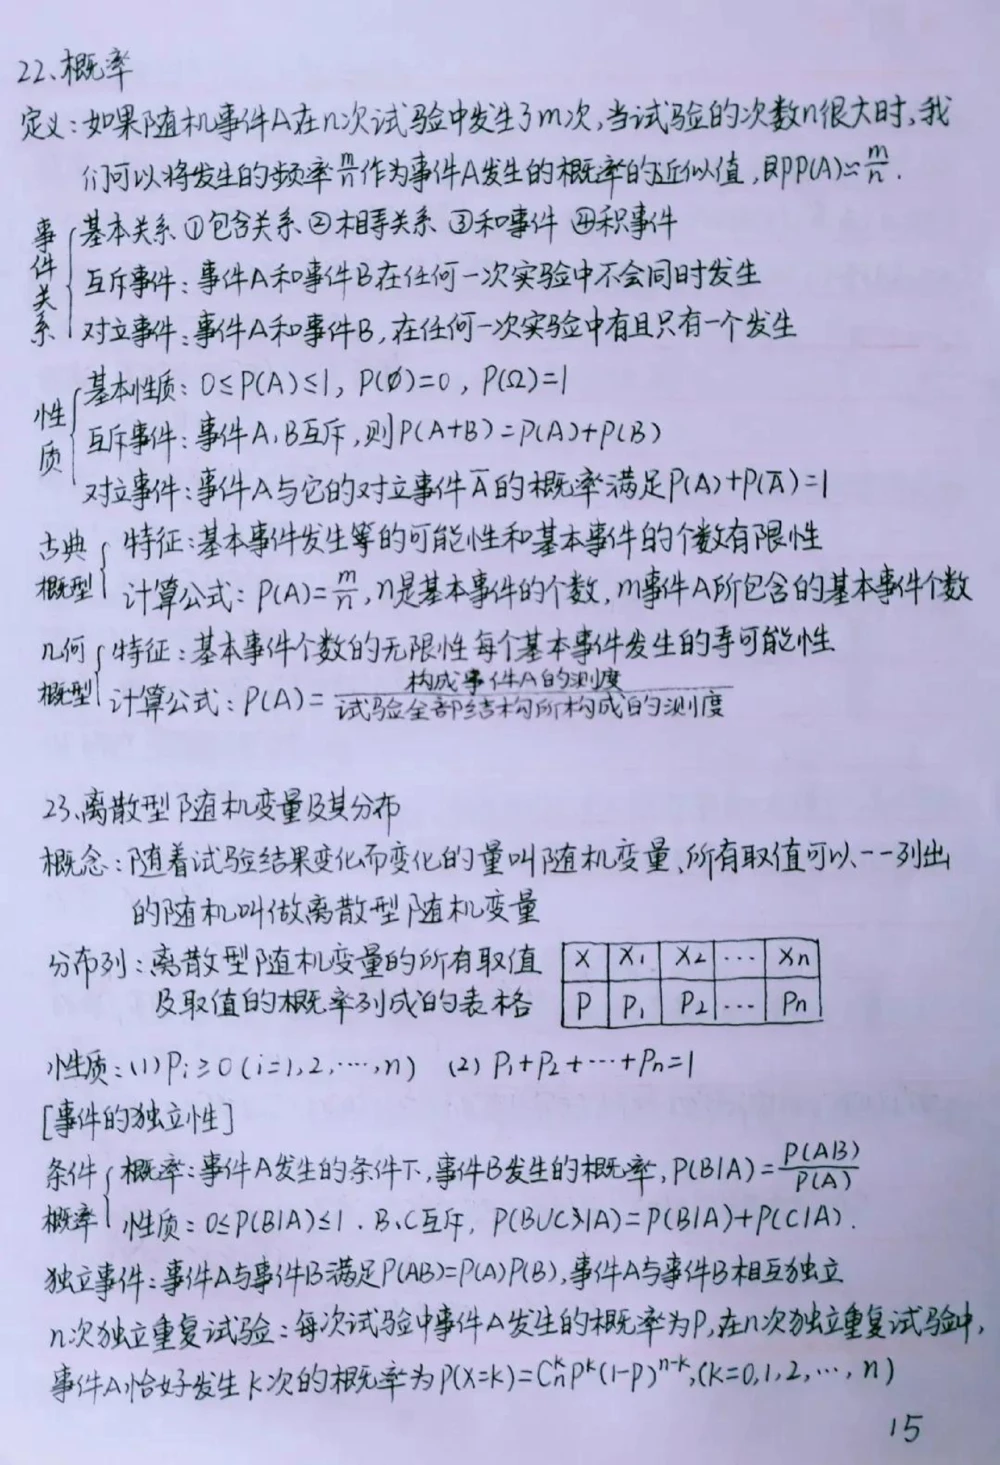 22、概率
定义：如果随机事件A在n次试验中发生了m次，当试验的次数n很大时，我
们可以将发生的频率m/n作为事件A发生的概率的近似值，即PP(A)≈m/n.
事件关系
基本关系 ①包含关系 ②相等关系 ③和事件 ④积事件
互斥事件：事件A和事件B在任何一次实验中不会同时发生
对立事件：事件A和事件B，在任何一次实验中有且只有一个发生
性质
基本性质：0≤P(A)≤1，P(Ø)=0，P(Ω)=1
互斥事件：事件A、B互斥，则P(A+B)=P(A)+P(B)
对立事件：事件A与它的对立事件A̅的概率满足P(A)+P(A̅)=1
古典概型
特征：基本事件发生等的可能性和基本事件的个数有限性
计算公式：P(A)=m/n，n是基本事件的个数，m事件A所包含的基本事件个数
几何概型
特征：基本事件个数的无限性每个基本事件发生的等可能性
计算公式：P(A)=构成事件A的测度/试验全部结构所构成的测度
23、离散型随机变量及其分布
概念：随着试验结果变化而变化的量叫随机变量、所有取值可以一一列出
的随机叫做离散型随机变量
分布列：离散型随机变量的所有取值
及取值的概率列成的表格
X X₁ X₂ … Xn
P P₁ P₂ … Pn
性质：(1) Pi≥0 (i=1,2,…,n) (2) P₁+P₂+…+Pn=1
[事件的独立性]
条件概率
概率：事件A发生的条件下，事件B发生的概率，P(B|A)=P(AB)/P(A)
性质：0≤P(B|A)≤1．B、C互斥，P(B∪C)|A)=P(B|A)+P(C|A).
独立事件：事件A与事件B满足P(AB)=P(A)P(B)，事件A与事件B相互独立
n次独立重复试验：每次试验中事件A发生的概率为P，在n次独立重复试验中，
事件A恰好发生k次的概率为P(X=k)=Cₙᵏpᵏ(1-p)ⁿ⁻ᵏ,(k=0,1,2,…,n)
15